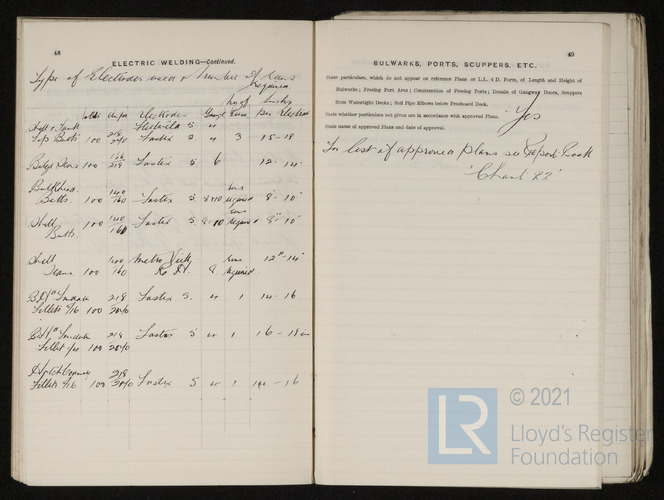 48
ELECTRIC WELDING—Continued.
Type of Electrodes used & Number of Runs
Required
No of Inches
Volts Amps Electrodes Gauge Runs Per Electrode
Shell & Tank
Top Butts 100 218 240 Fastex 5 3 15-18
Bilge 100 218 Fastex 5 6 12-14
Bulkhead
Butts. 100 140 160 Fastex 5 8 & 10 required 8"-10"
Shell
Butts. 100 140 160 Fastex 5 8 & 10 required 8"-10"
Shell
Seams 100 140 160 Metro Vick 8 required 12"-14"
218
Fillets 5/16 100 240 Fastex 5. 1 14-16
218
Fillet 100 240 Fastex 5 1 16-18 in
218
Fillets 5/16 100 240 Fastex 5 1 14-16
49
BULWARKS, PORTS, SCUPPERS, ETC.
State particulars, which do not appear on reference Plans or L.L. 4 D. Form, of Length and Height of
Bulwarks; Freeing Port Area; Construction of Freeing Ports; Details of Gangway Doors, Scuppers
from Watertight Decks; Soil Pipe Elbows below Freeboard Deck.
State whether particulars not given are in accordance with approved Plans. Yes
State names of approved Plans and date of approval.
For list of approved plans see Report Book
"Chart 22"
© 2021
LR
Lloyd's Register
Foundation